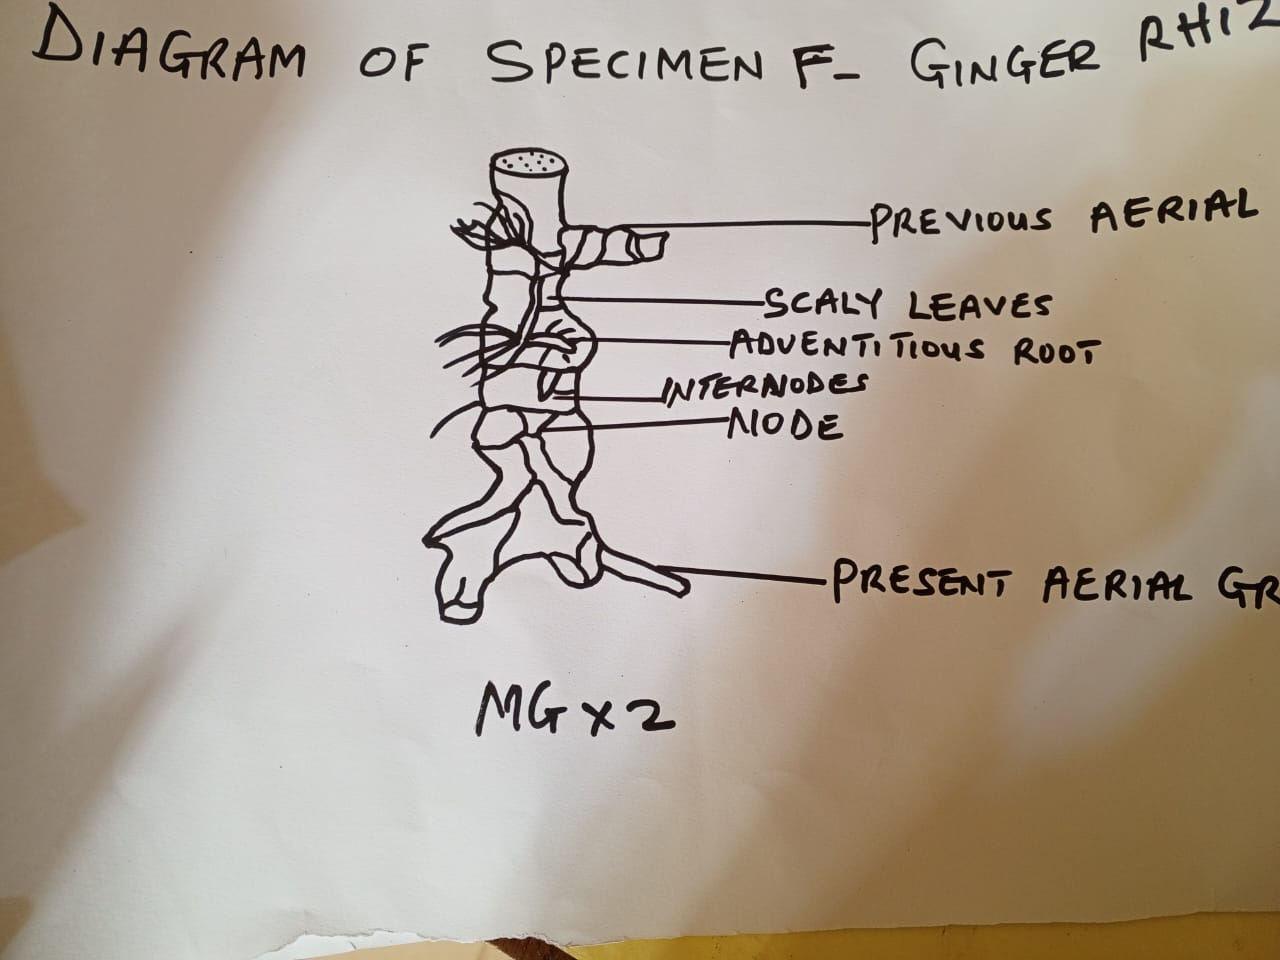 DIAGRAM OF SPECIMEN F- GINGER RHIZ
PREVIOUS AERIAL
SCALY LEAVES
ADVENTITIOUS ROOT
INTERNODES
NODE
PRESENT AERIAL GR
MG x 2